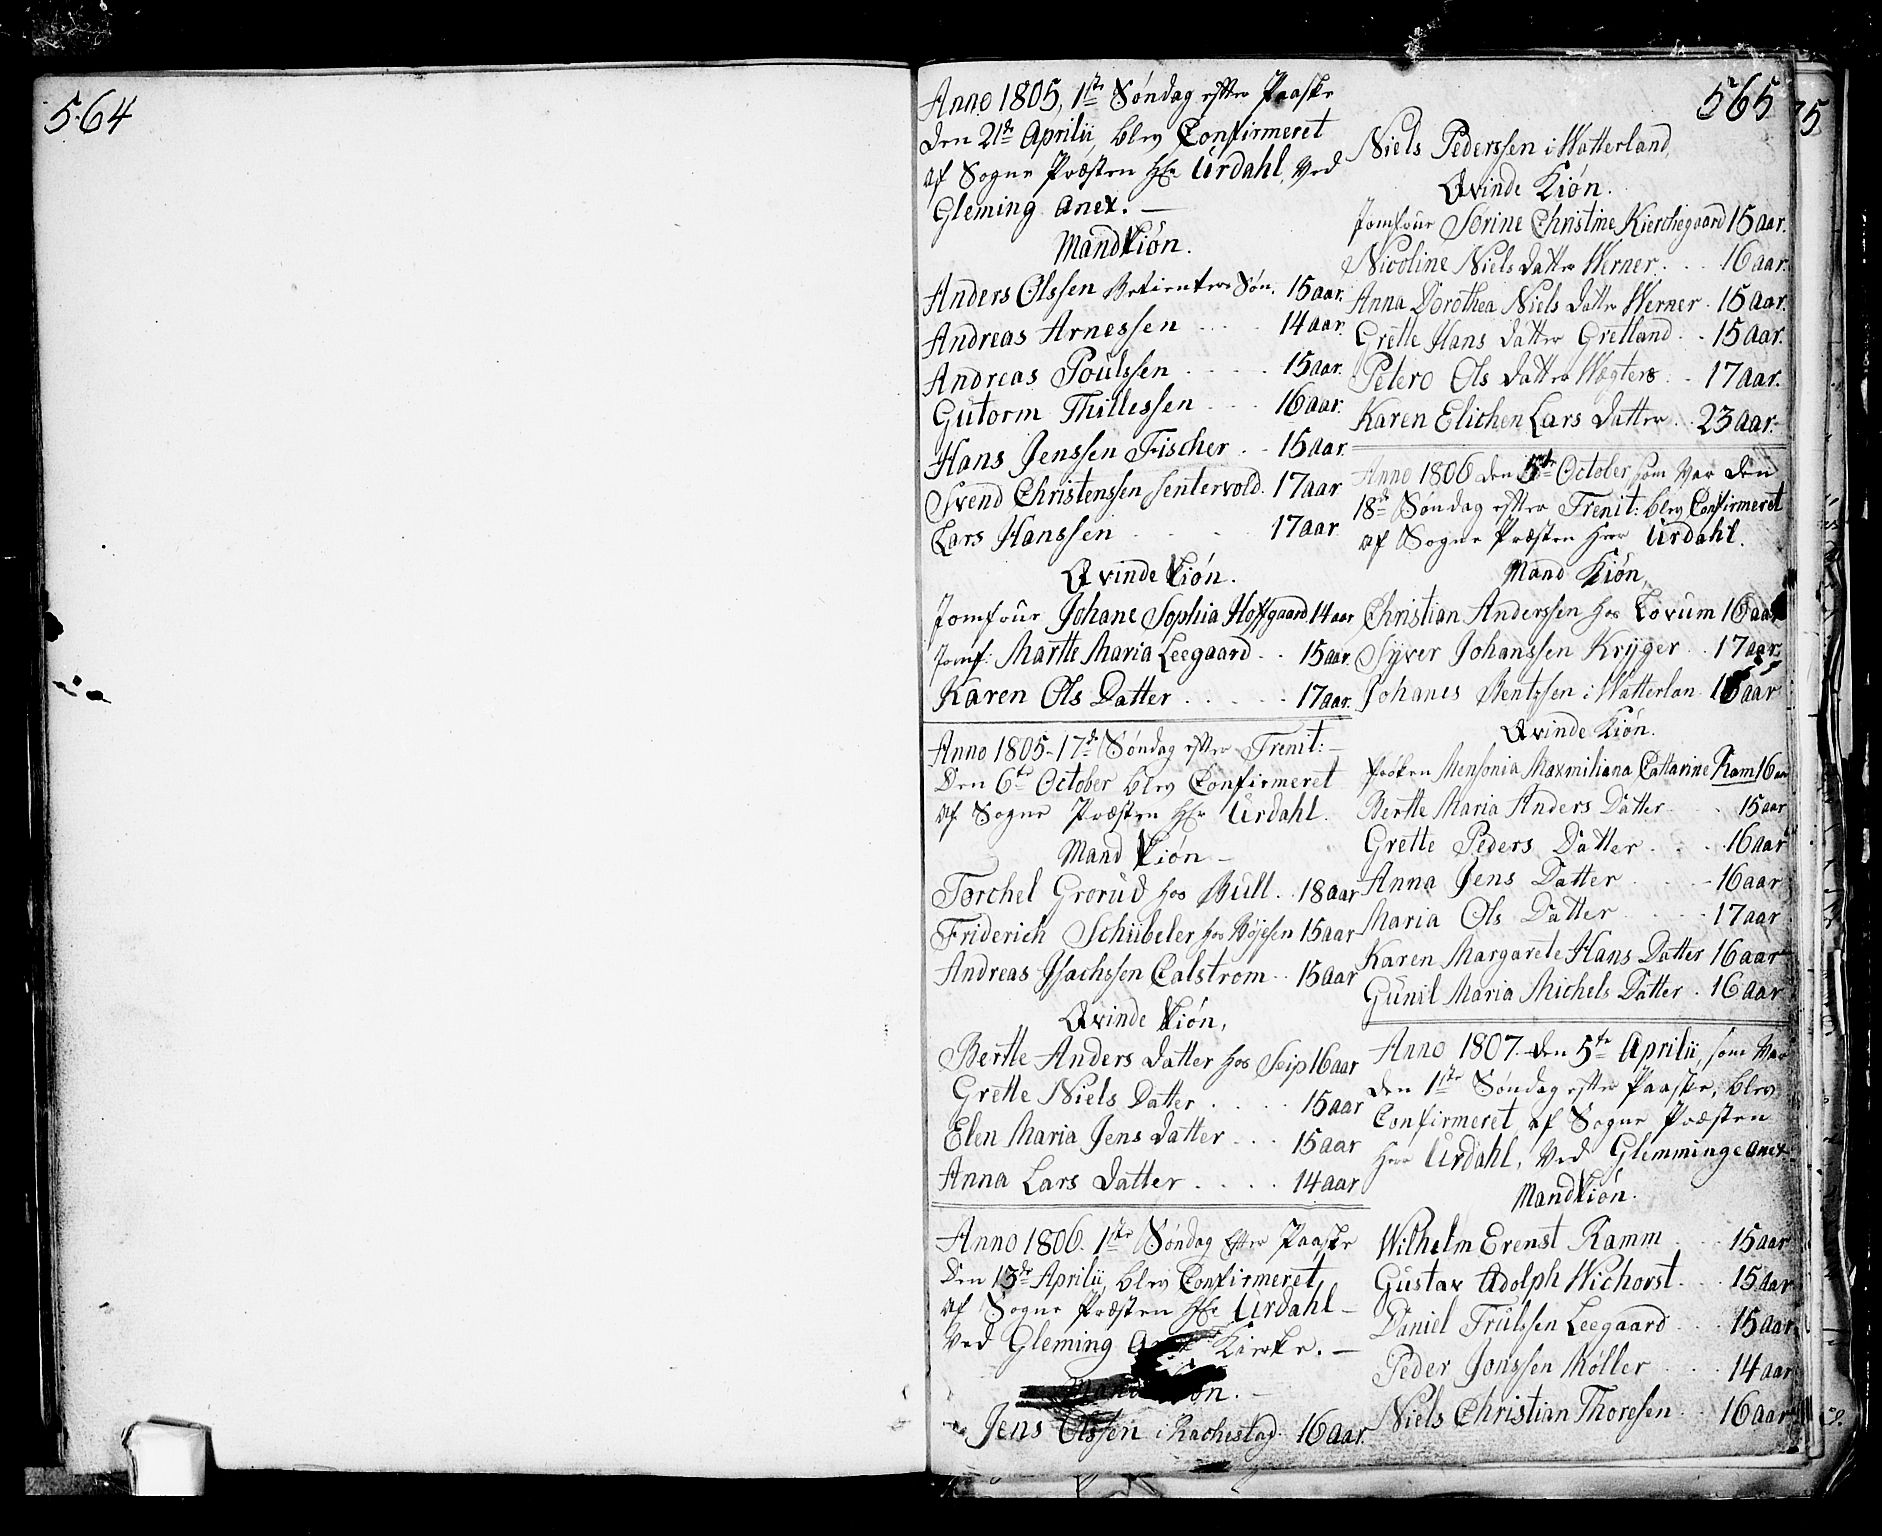 564
565
Anno 1805, 1ste Søndag efter Paaske
den 21de Aprilii, blev Confirmeret
af Sogne Præsten Hr Urdahl, Ved
Gleming anex. —
Mandkiøn.
Anders Olssen Betienters Søn. 15 aar.
Andreas Arnessen . . . . 14 aar.
Andreas Poulssen . . . . 15 aar.
Gutorm Thillessen . . . 16 aar.
Hans Jenssen Fischer . . 15 aar.
Svend Christenssen Sentervold. 17 aar
Lars Hanssen . . . . 17 aar
Qvinde kiøn.
Jomfrue Johane Sophia Hoffgaard. 14 aar
Jomf: Marthe Maria Leegaard . . 15 aar.
Karen Ols Datter . . . . . 17 aar.
Anno 1805. 17de Søndag efter Trenit: —
Den 6te October blev Confirmeret
af Sogne Præsten Hr Urdahl.
Mand kiøn —
Torchel Grorud hos Bull . . 18 aar
Friderich Schübeler hos Böjesen 15 aar
Andreas Isachssen Calstrom . . 15 aar
Qvinde kiøn,
Berthe Anders Datter hos Seip 16 aar
Grethe Niels Datter . . . . 15 aar
Elen Maria Jens Datter . . . 15 aar
Anna Lars Datter . . . . 14 aar
Anno 1806. 1ste Søndag Efter Paaske
Den 13de Aprilii, blev Confirmeret,
af Sogne Præsten Hr Urdahl —
Ved Gleming Kirke. —
Mand kiøn. —
Jens Olssen i Rachestad 16 aar.
Niels Pederssen i Watterland,
Qvinde Kiøn.
Jomfrue Sørine Christine Kierchegaard 15 aar.
Nicoline Niels datter Werner . . . 16 aar.
Anna Dorothea Niels datter Werner . 15 aar.
Grethe Hans datter Gretland . . 15 aar.
Petero Ols datter Wægters . . 17 aar.
Karen Elichen Lars datter . . 23 aar.
Anno 1806 den 5te October som Var den
18de Søndag efter Trenit: blev Confirmeret
af Sogne Præsten Herr Urdahl.
Mand Kiøn,
Christian Anderssen hos Lorum 16 aar
Syver Johanssen Kryger . . 17 aar.
Johanes Bentzsen i Watterlan 15 aar
Qvinde Kiøn.
Frøken Mensonia Maxmiliana Cattarine Ram 16 aar
Berthe Maria Anders Datter . . 15 aar
Grethe Peders Datter . . . 16 aar
Anna Jens Datter . . . 16 aar
Maria Ols Datter . . . . 17 aar
Karen Margarete Hans Datter 16 aar
Gunil Maria Michels Datter . 16 aar
Anno 1807. den 5te Aprilii, som Var
den 1ste Søndag efter Paaske, blev
Confirmeret af Sogne Præsten
Herr Urdahl, Ved Glemminge anex.
Mandkiøn.
Wilhelm Erenst Ramm . . . 15 aar
Gustav Adolph Wichorst . . . 15 aar
Daniel Trulssen Leegaard . . 15 aar
Peder Jonssen Møller . . . 14 aar
Niels Christian Thoresen . . 16 aar